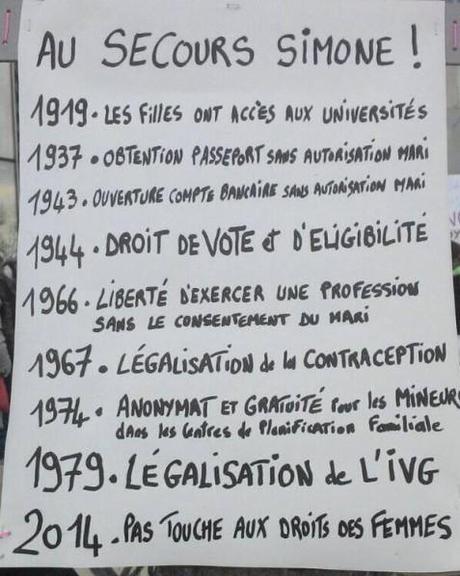 AU SECOURS SIMONE !
1919. LES FILLES ONT ACCÈS AUX UNIVERSITÉS
1937. OBTENTION PASSEPORT SANS AUTORISATION MARI
1943. OUVERTURE COMPTE BANCAIRE SANS AUTORISATION MARI
1944. DROIT DE VOTE et D'ELIGIBILITÉ
1966. LIBERTÉ D'EXERCER UNE PROFESSION
SANS LE CONSENTEMENT DU MARI
1967. LÉGALISATION de la CONTRACEPTION
1974. ANONYMAT ET GRATUITÉ pour les MINEUR
dans les Centres de Planification Familiale
1979. LÉGALISATION de L'IVG
2014. PAS TOUCHE AUX DROITS DES FEMMES